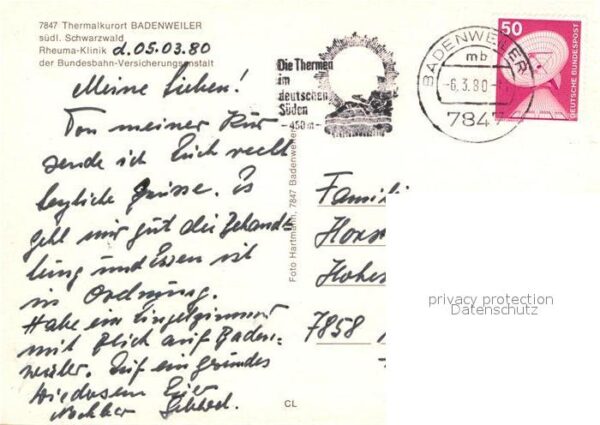 7847 Thermalkurort BADENWEILER
südl. Schwarzwald
Rheuma-Klinik d. 05.03.80
der Bundesbahn-Versicherungsanstalt
Meine Lieben!
Von meiner Kur
sende ich Euch recht
herzliche Grüsse. Es
geht mir gut die Behand
lung und Essen ist
in Ordnung.
Habe ein Einzelzimmer
mit Blick auf Baden-
weiler. Auf ein gesundes
Wiedersehn Euer
Die Thermen
im
deutschen
Süden
- 450 m -
BADENWEILER
mb
-6.3.80-
7847
50
DEUTSCHE BUNDESPOST
Foto Hartmann, 7847 Badenweiler
7858
privacy protection
Datenschutz
CL